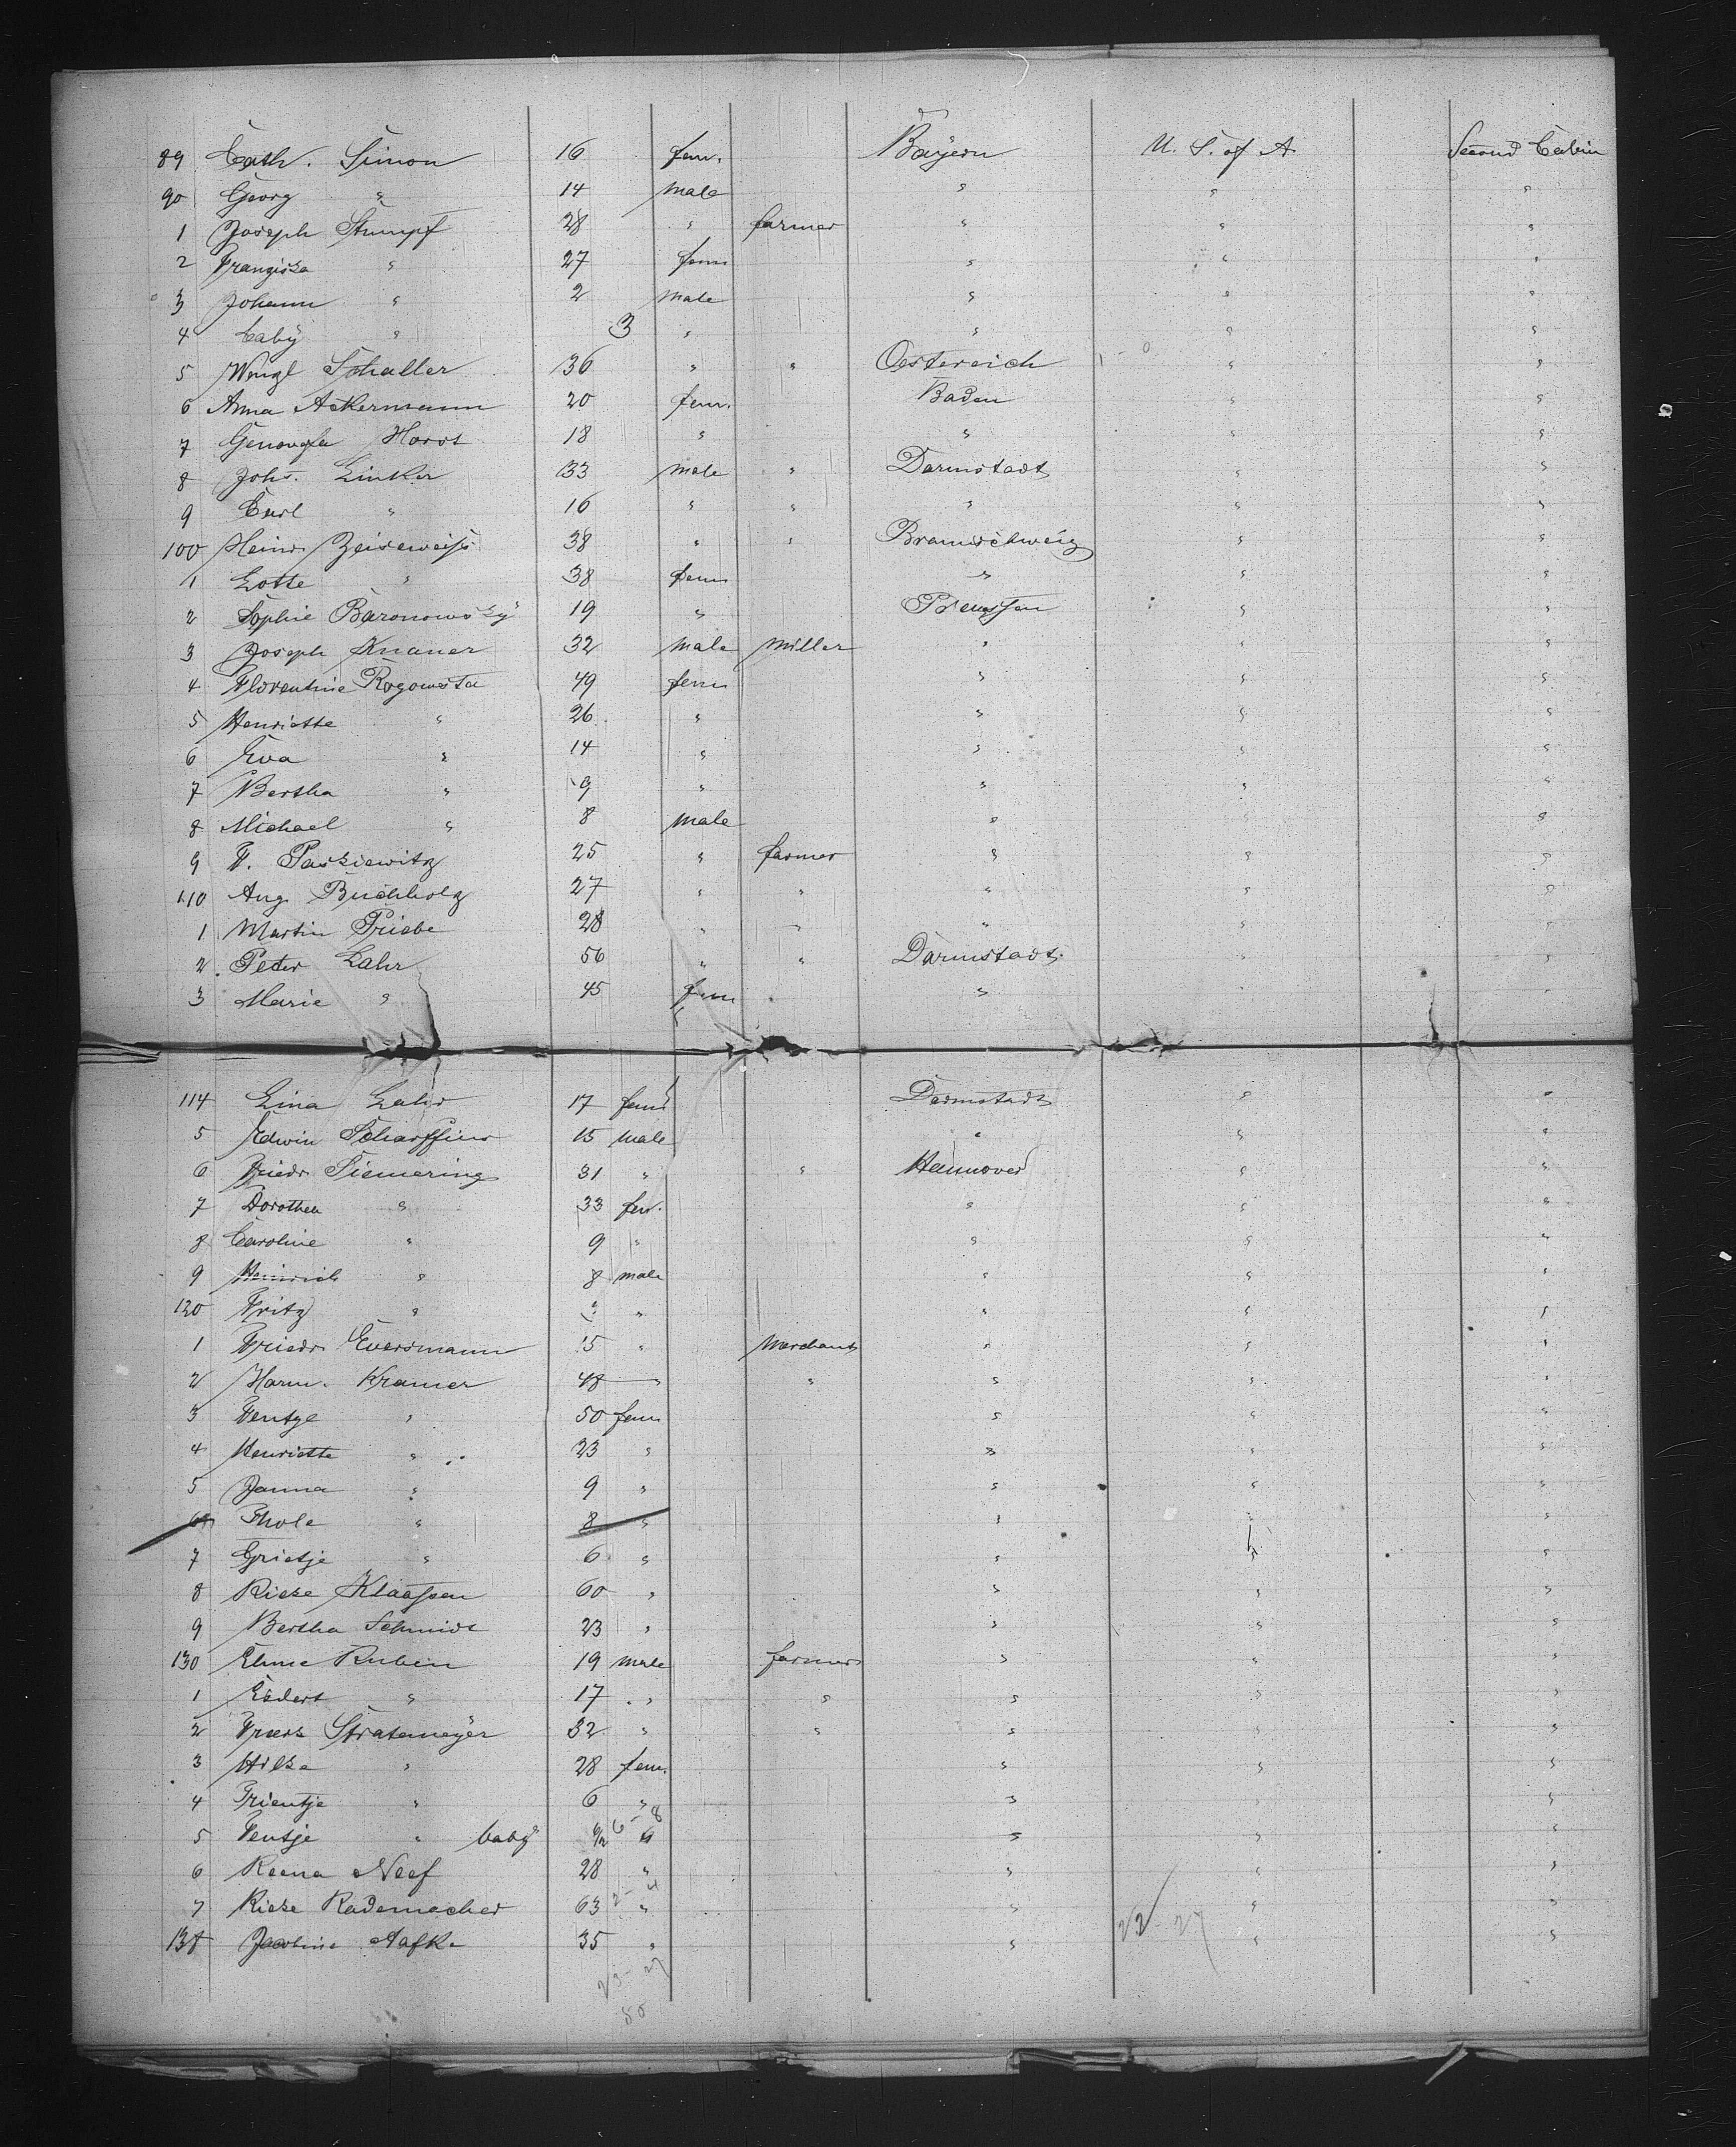 89 Cath. Simon 16 fem. Bayern U. S. of A. Second Cabin
90 Georg " 14 male " " "
1 Joseph Stumpf 28 " farmer " " "
2 Franziska " 27 fem " " "
3 Johann " 2 male " " "
4 Baby " 3 " " " "
5 Wenzl Schaller 36 " " Oestereich " "
6 Anna Ackermann 20 fem. Baden " "
7 Genovefa Horst 18 " " " "
8 Johs. Linker 33 male " Darmstadt " "
9 Carl " 16 " " " " "
100 Heinr. Zeiseweiss 38 " " Braunschweig " "
1 Lotte " 38 fem " " "
2 Sophie Baronowsky 19 " Preussen " "
3 Joseph Knauer 32 male miller " " "
4 Florentine Rogowsta 49 fem " " "
5 Henriette " 26 " " " "
6 Eva " 14 " " " "
7 Bertha " 9 " " " "
8 Michael " 8 male " " "
9 F. Paskiewitz 25 " farmer " " "
110 Aug. Buchholz 27 " " " " "
1 Martin Priebe 28 " " " " "
2 Peter Lahr 56 " " Darmstadt " "
3 Marie " 45 fem " " "
114 Lina Lahr 17 fem Darmstadt " "
5 Edwin Scharffier 15 male " " "
6 Friedr. Siemering 31 " " Hannover " "
7 Dorothea " 33 fem. " " "
8 Caroline " 9 " " " "
9 Heinrich " 8 male " " "
120 Fritz " " " " "
1 Friedr. Eversmann 15 " Merchant " " "
2 Harm. Kramer 48 " " " " "
3 Fentge " 50 fem " " "
4 Henriette " 23 " " " "
5 Janna " 9 " " " "
6 Thole " 8 " " " "
7 Grietje " 6 " " " "
8 Rieke Klaassen 60 " " " "
9 Bertha Schmidt 23 " " " "
130 Ehme Ruben 19 male farmer " " "
1 Eddert " 17 " " " " "
2 Stratemeyer 32 " " " " "
3 Hilka " 28 fem. " " "
4 Trientje " 6 " " " "
5 Fentje " baby " " " "
6 Reena Neef 28 " " " "
7 Rieke Rademacher 63 " " " "
138 Jacobine Aafke 35 " " " "
22-27
23-27
50